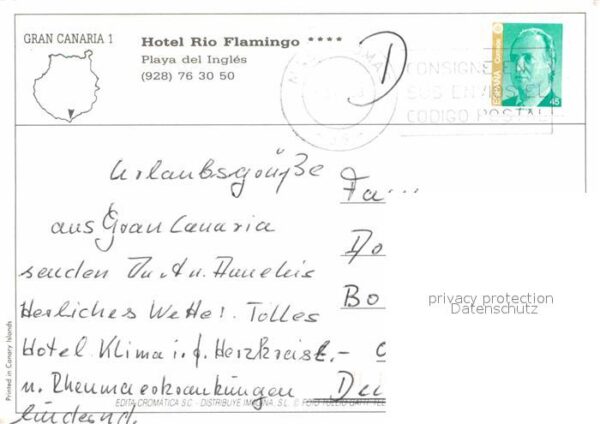 GRAN CANARIA 1
Hotel Rio Flamingo ****
Playa del Inglés
(928) 76 30 50
D
CONSIGNE EN
SUS ENVIOS EL
CODIGO POSTAL
ESPAÑA Correos
45
Urlaubsgrüße
aus Gran Canaria
senden
Herrliches Wetter. Tolles
Hotel. Klima i. d. Herzkreisl.-
u. Rheumaerkrankungen
lindernd.
Fa
Do
Bo
privacy protection
Datenschutz
Printed in Canary Islands
EDITA CROMATICA S.C. - DISTRIBUYE IMAGINA, S.L. © FOTO TULLIO GATTI